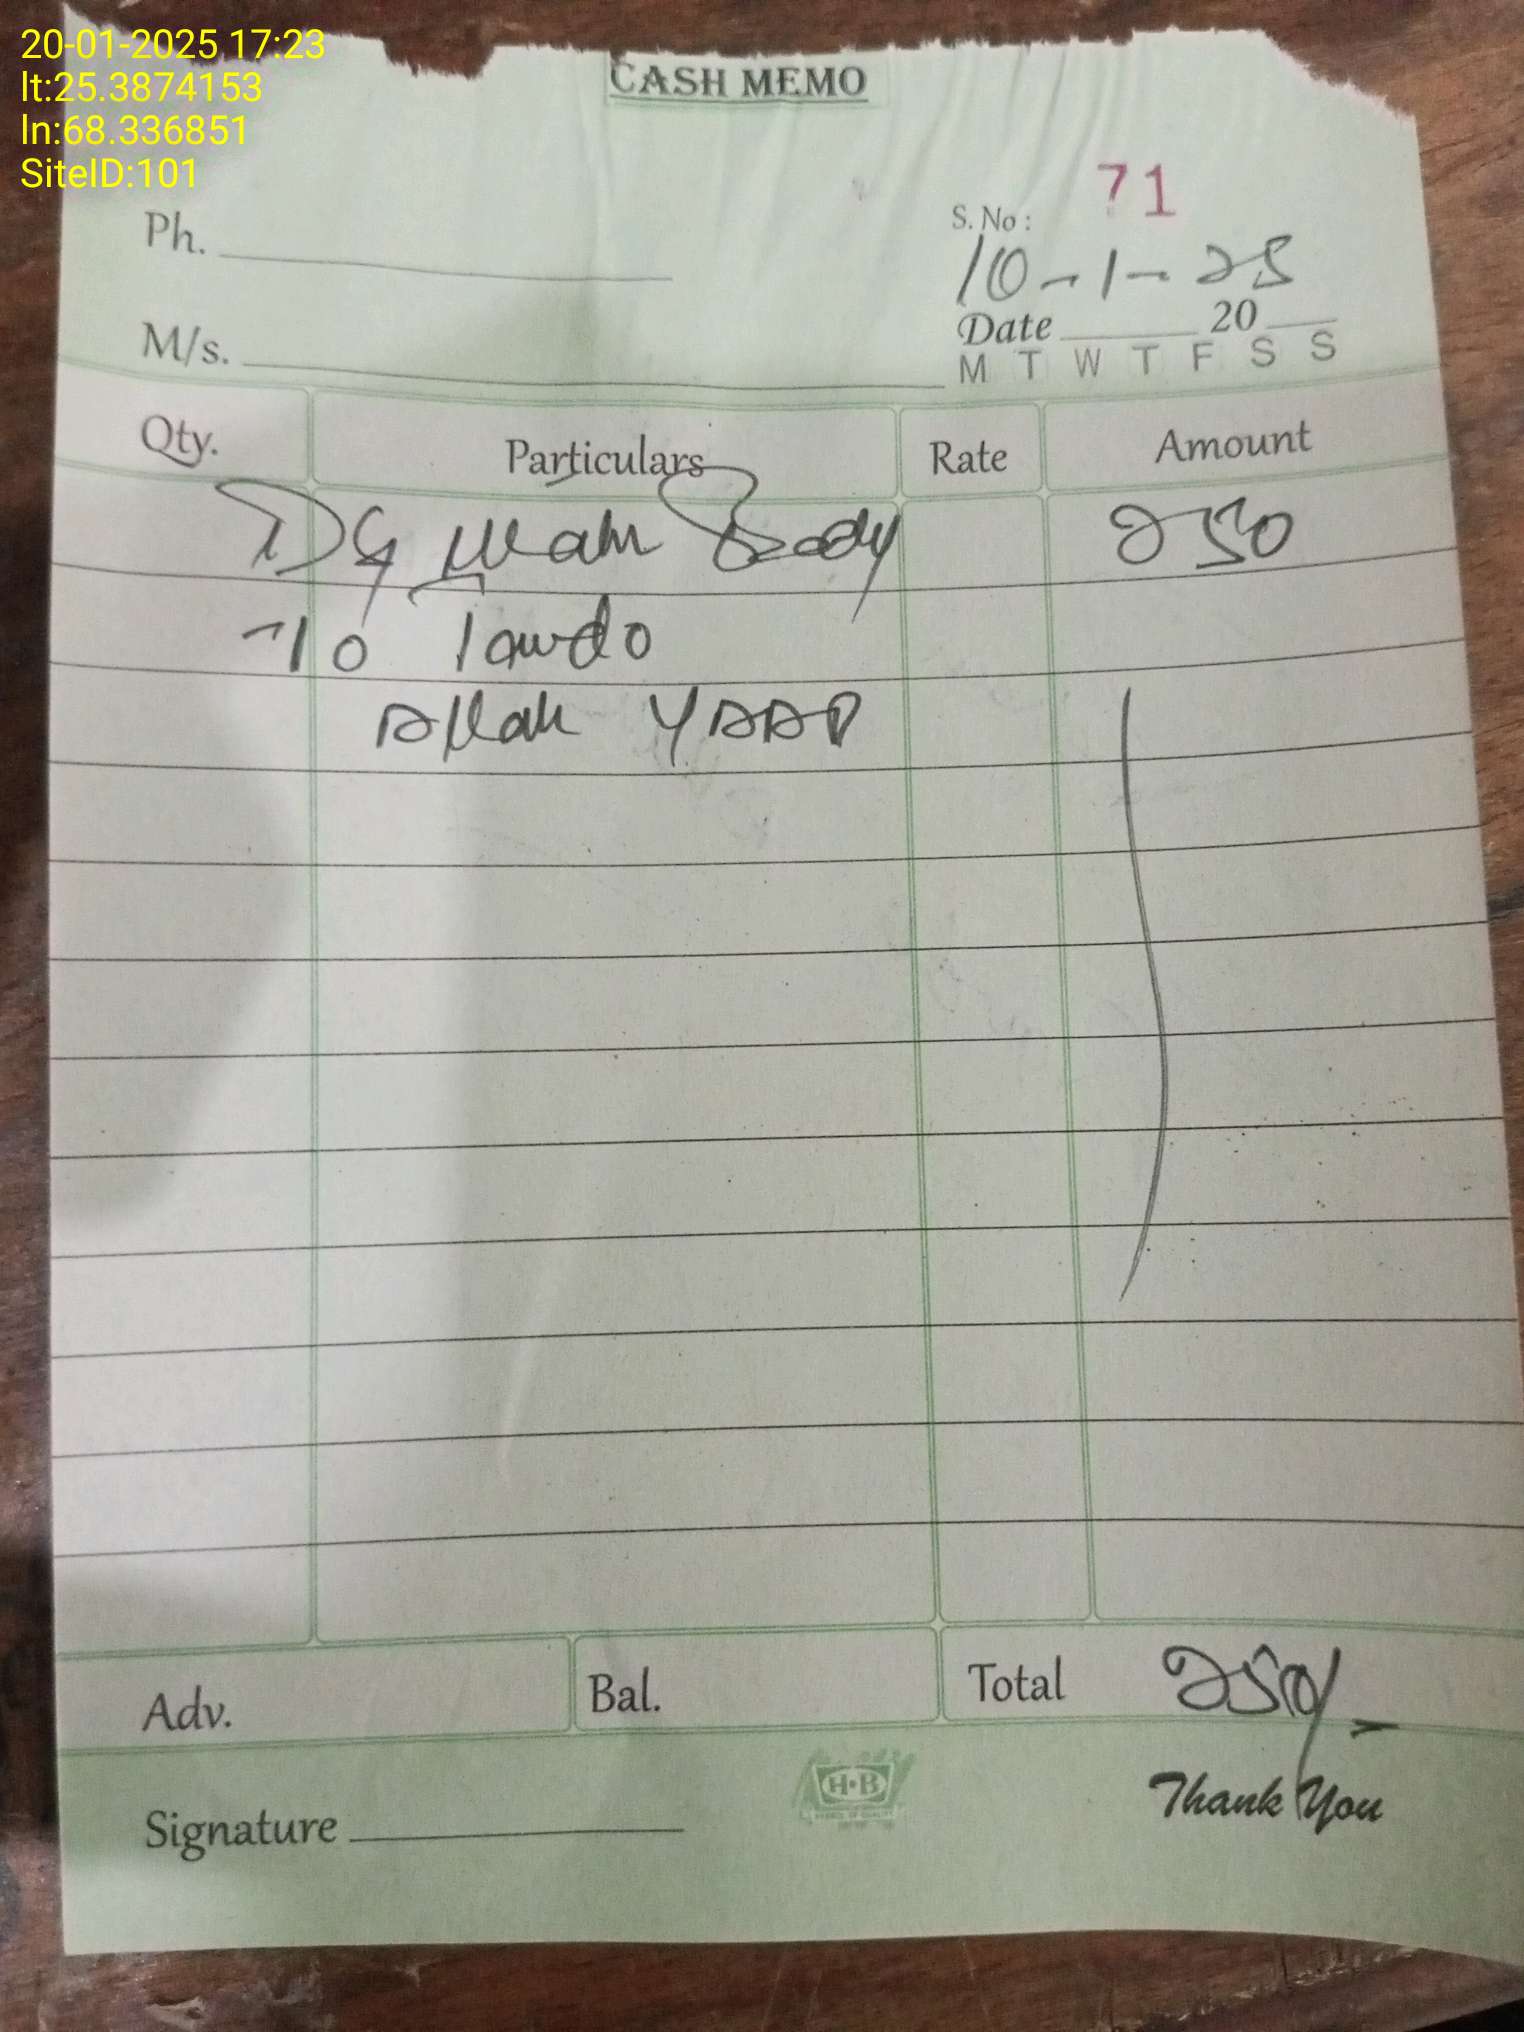 20-01-2025 17:23
lt:25.3874153
ln:68.336851
SiteID:101
CASH MEMO
Ph.
S. No : 71
10-1-25
Date 20
M/s.
M T W T F S S
Qty. Particulars Rate Amount
Body 250
To Tando
Allah YAAR
Adv. Bal. Total 250/-
H·B
Thank You
Signature